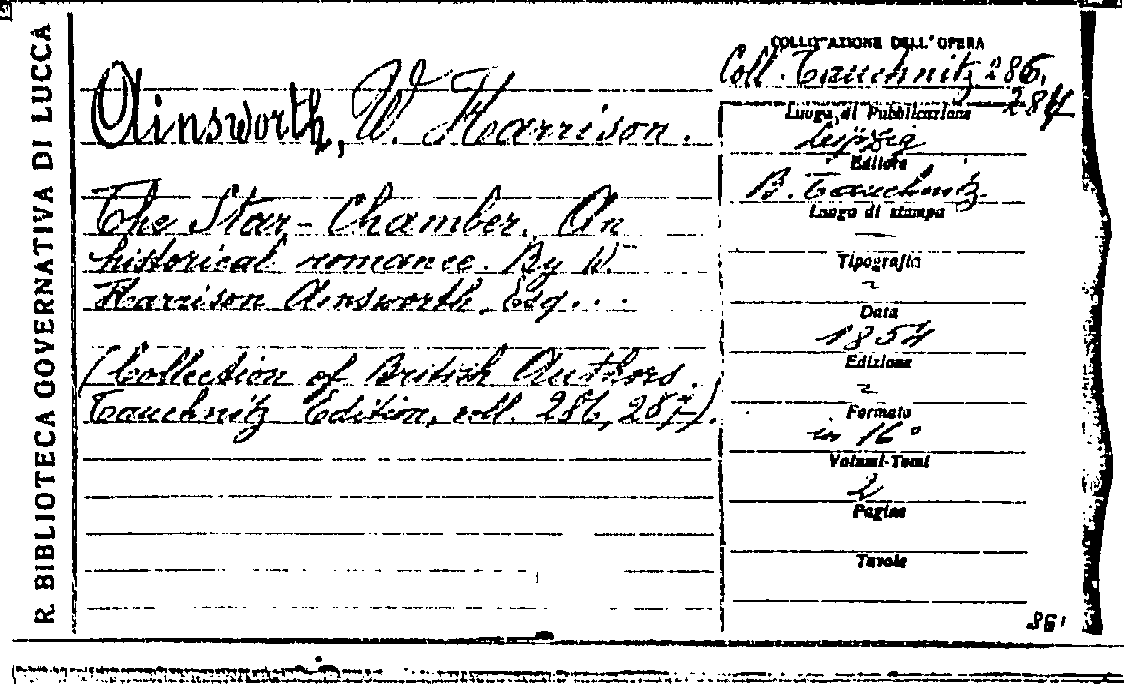 R. BIBLIOTECA GOVERNATIVA DI LUCCA
Ainsworth, W. Harrison.
The Star-Chamber. An
historical romance. By W.
Harrison Ainsworth, Esq...
(Collection of British Authors.
Tauchnitz Edition, coll. 286, 287).
COLLOCAZIONE DELL'OPERA
Coll. Tauchnitz 286,
287
Luogo di Pubblicazione
Leipzig
Editore
B. Tauchnitz
Luogo di stampa
—
Tipografia
Data
1854
Edizione
Formato
in 16°
Volumi-Tomi
2
Pagine
Tavole